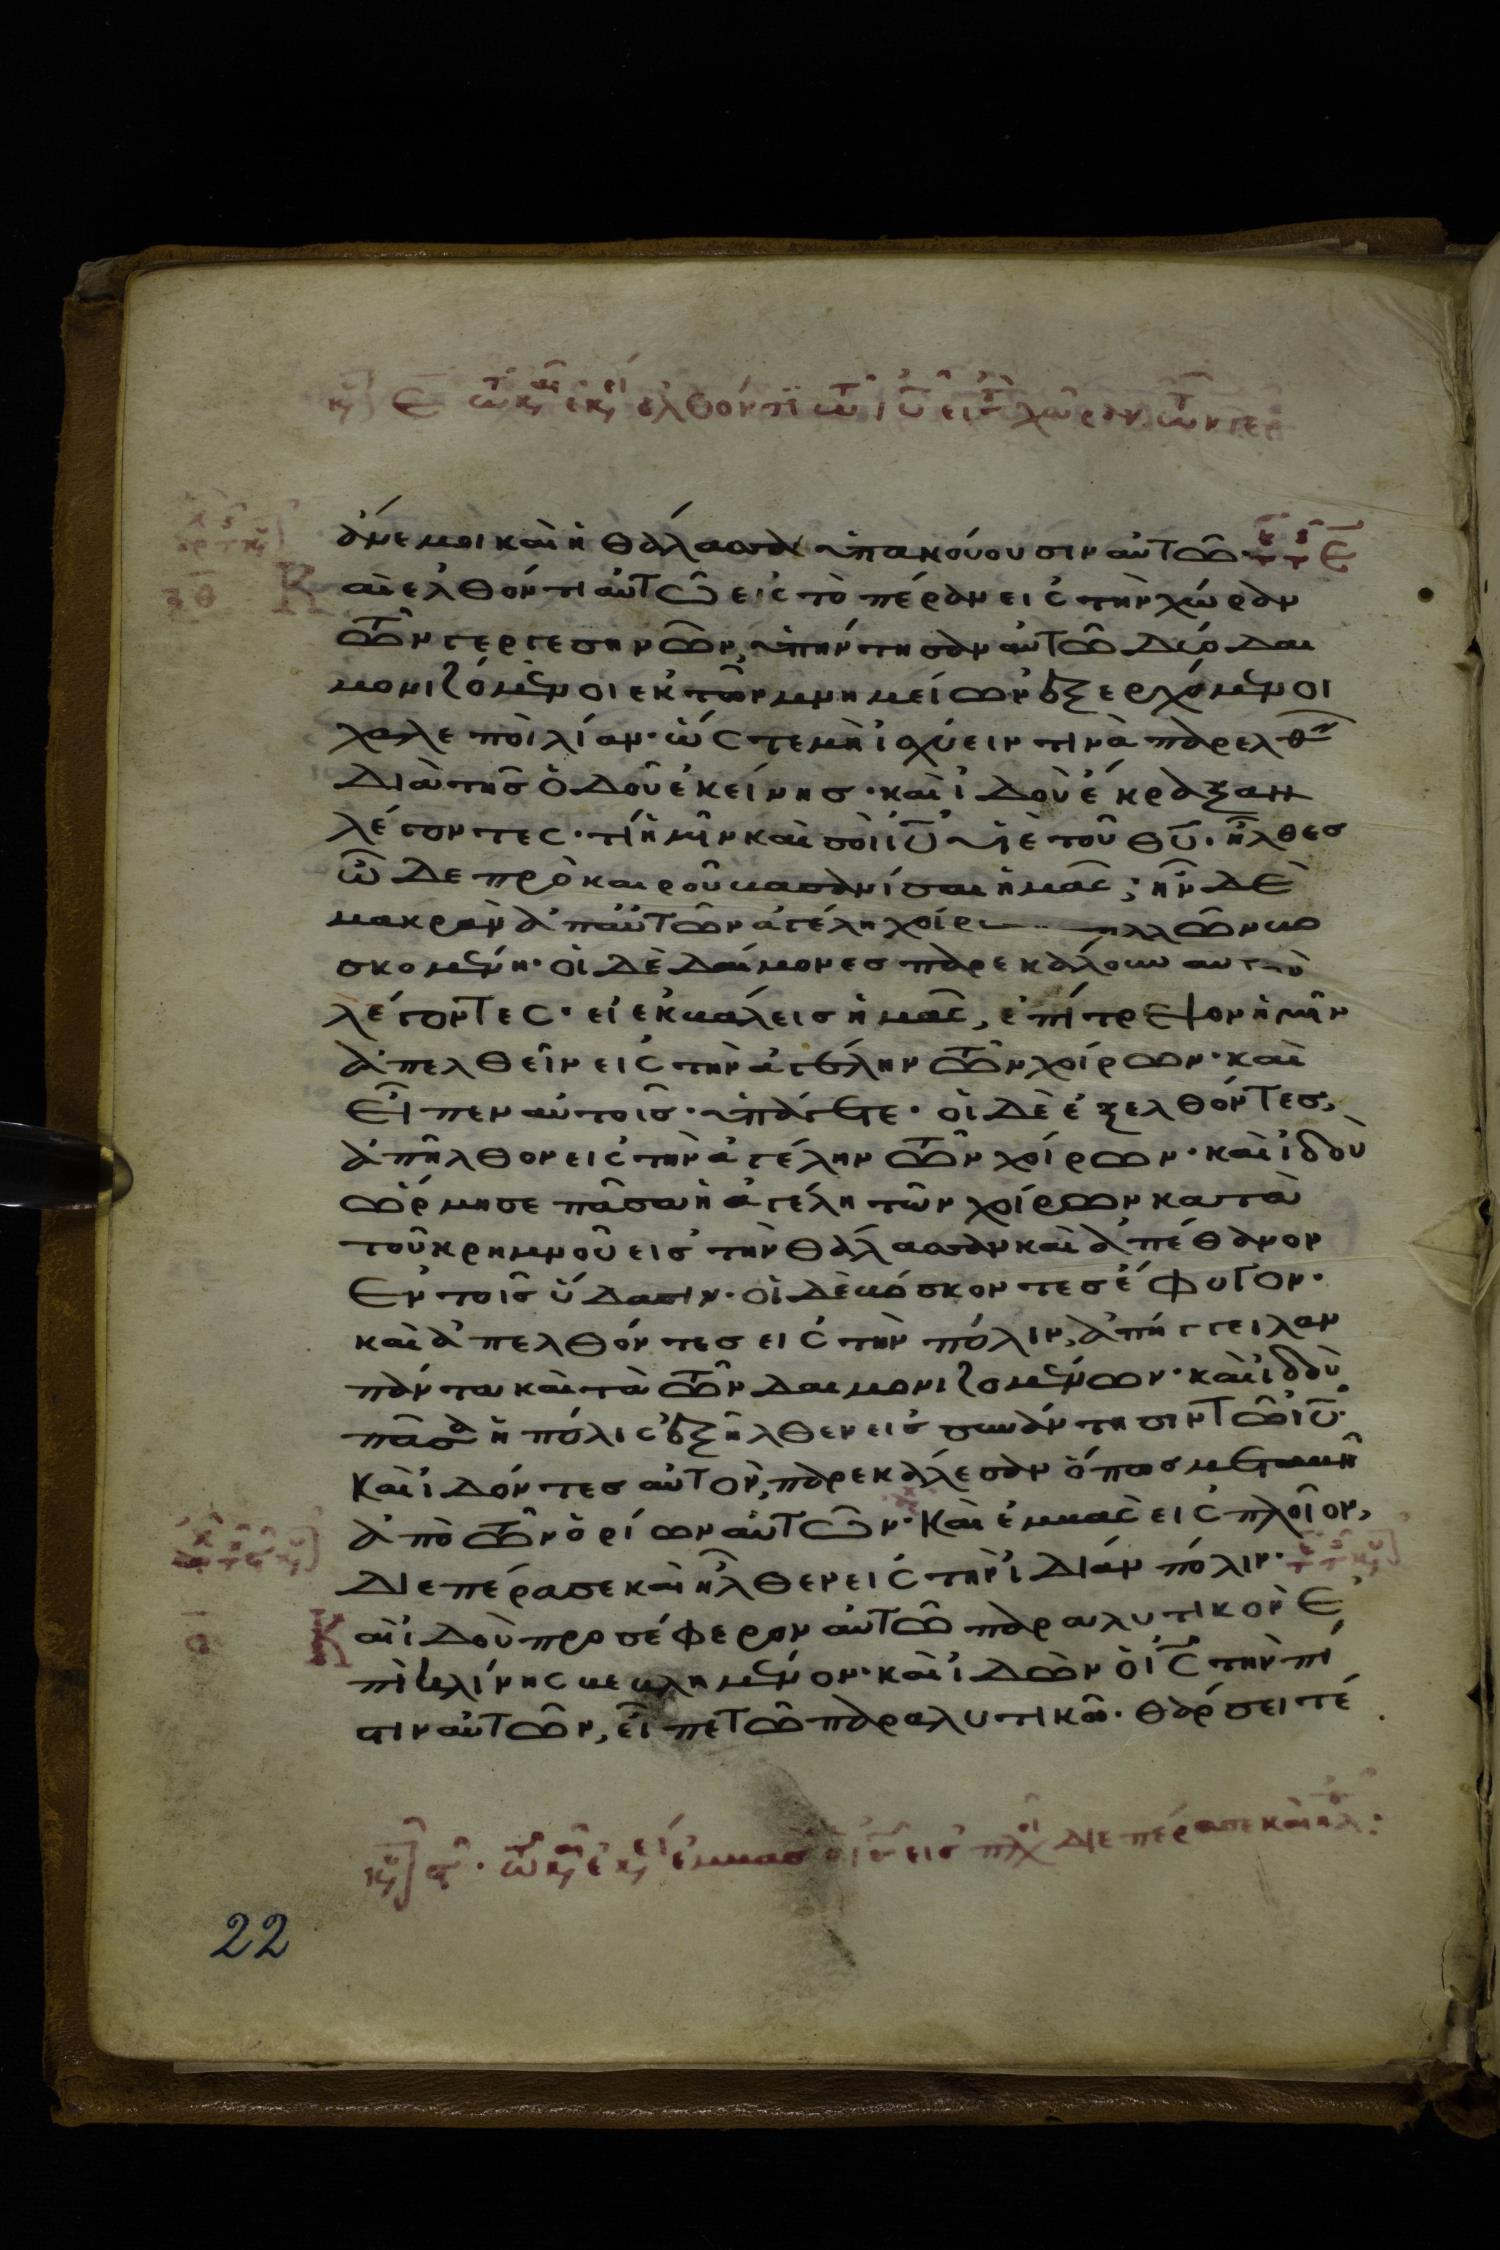 κυ] Ε τῶ κ, ἐκ, ἐλθόντι τῶ ιυ εἰς τ χώραν τῶν γερ
ἄνεμοι καὶ ἡ θάλασσα ὑπακούουσιν αὐτῶ· Ε
ξθ Καὶ ἐλθόντι αὐτῶ εἰς τὸ πέραν εἰς τὴν χώραν
τῶν γεργεσηνῶν, ὑπήντησαν αὐτῶ δύο δαι
μονιζόμενοι ἐκ τῶν μνημείων ἐξερχόμενοι
χαλεποὶ λίαν· ὥστε μὴ ἰσχύειν τινὰ παρελθ
διὰ τῆς ὁδοῦ ἐκείνης· καὶ ἰδοὺ ἔκραξαν
λέγοντες· τί ἡμῖν καὶ σοὶ ιυ υἱὲ τοῦ θυ· ἦλθες
ὧδε πρὸ καιροῦ βασανίσαι ἡμᾶς; ἦν δὲ
μακρὰν ἀπ αὐτῶν ἀγέλη χοίρ πολλῶν βο
σκομένη· οἱ δὲ δαίμονες παρεκάλουν αὐτὸν
λέγοντες· εἰ ἐκβάλεις ἡμᾶς, ἐπίτρεψον ἡμῖν
ἀπελθεῖν εἰς τὴν ἀγέλην τῶν χοίρων· καὶ
εἶπεν αὐτοῖς· ὑπάγετε· οἱ δὲ ἐξελθόντες,
ἀπῆλθον εἰς τὴν ἀγέλην τῶν χοίρων· καὶ ἰδοὺ
ὥρμησε πᾶσα ἡ ἀγέλη τῶν χοίρων κατὰ
τοῦ κρημνοῦ εἰς τὴν θάλασσαν καὶ ἀπέθανον
ἐν τοῖς ὕδασιν· οἱ δὲ βόσκοντες ἔφυγον·
καὶ ἀπελθόντες εἰς τὴν πόλιν, ἀπήγγειλαν
πάντα καὶ τὰ τῶν δαιμονιζομένων· καὶ ἰδοὺ
πᾶσα ἡ πόλις ἐξῆλθεν εἰς συνάντησιν τῶ ιυ·
Καὶ ἰδόντες αὐτὸν, παρεκάλεσαν ὅπως μεταβῆ
ἀπὸ τῶν ὁρίων αὐτῶν· Καὶ ἐμβὰς εἰς πλοῖον,
διεπέρασε καὶ ἦλθεν εἰς τὴν ἰδίαν πόλιν·
ο Καὶ ἰδοὺ προσέφερον αὐτῶ παραλυτικὸν ἐ
πὶ κλίνης βεβλημένον· καὶ ἰδὼν ὁ ις τὴν πί
στιν αὐτῶν, εἶπε τῶ παραλυτικῶ· θάρσει τέ
κυ] ϛ· τῶ κ, ἐκ, ἐμβὰς ὁ ις εἰς πλ διεπέρασε καὶ ηλ:
22